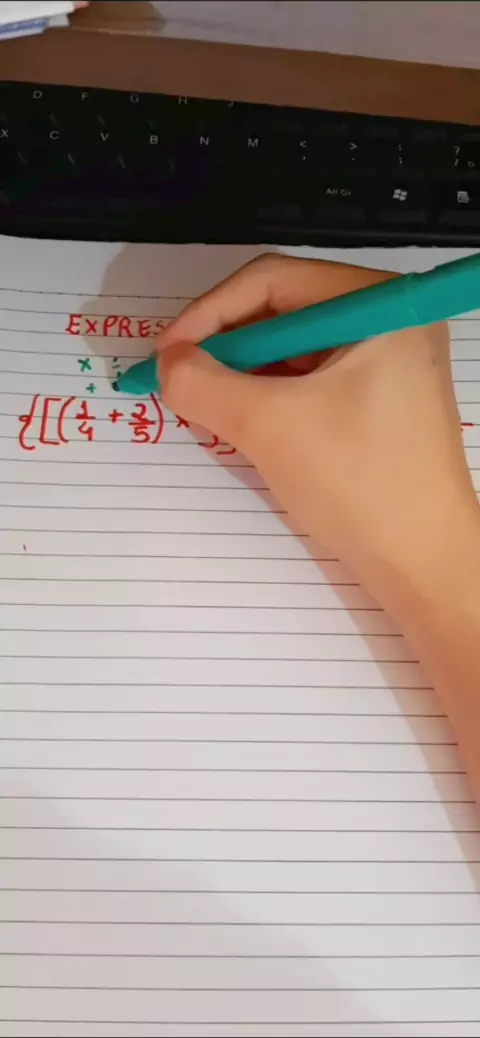 D F G H J
X C V B N M < > : ?
, . ; /
Alt Gr
EXPRES
× ÷
+
{[(1/4 + 2/5) ×